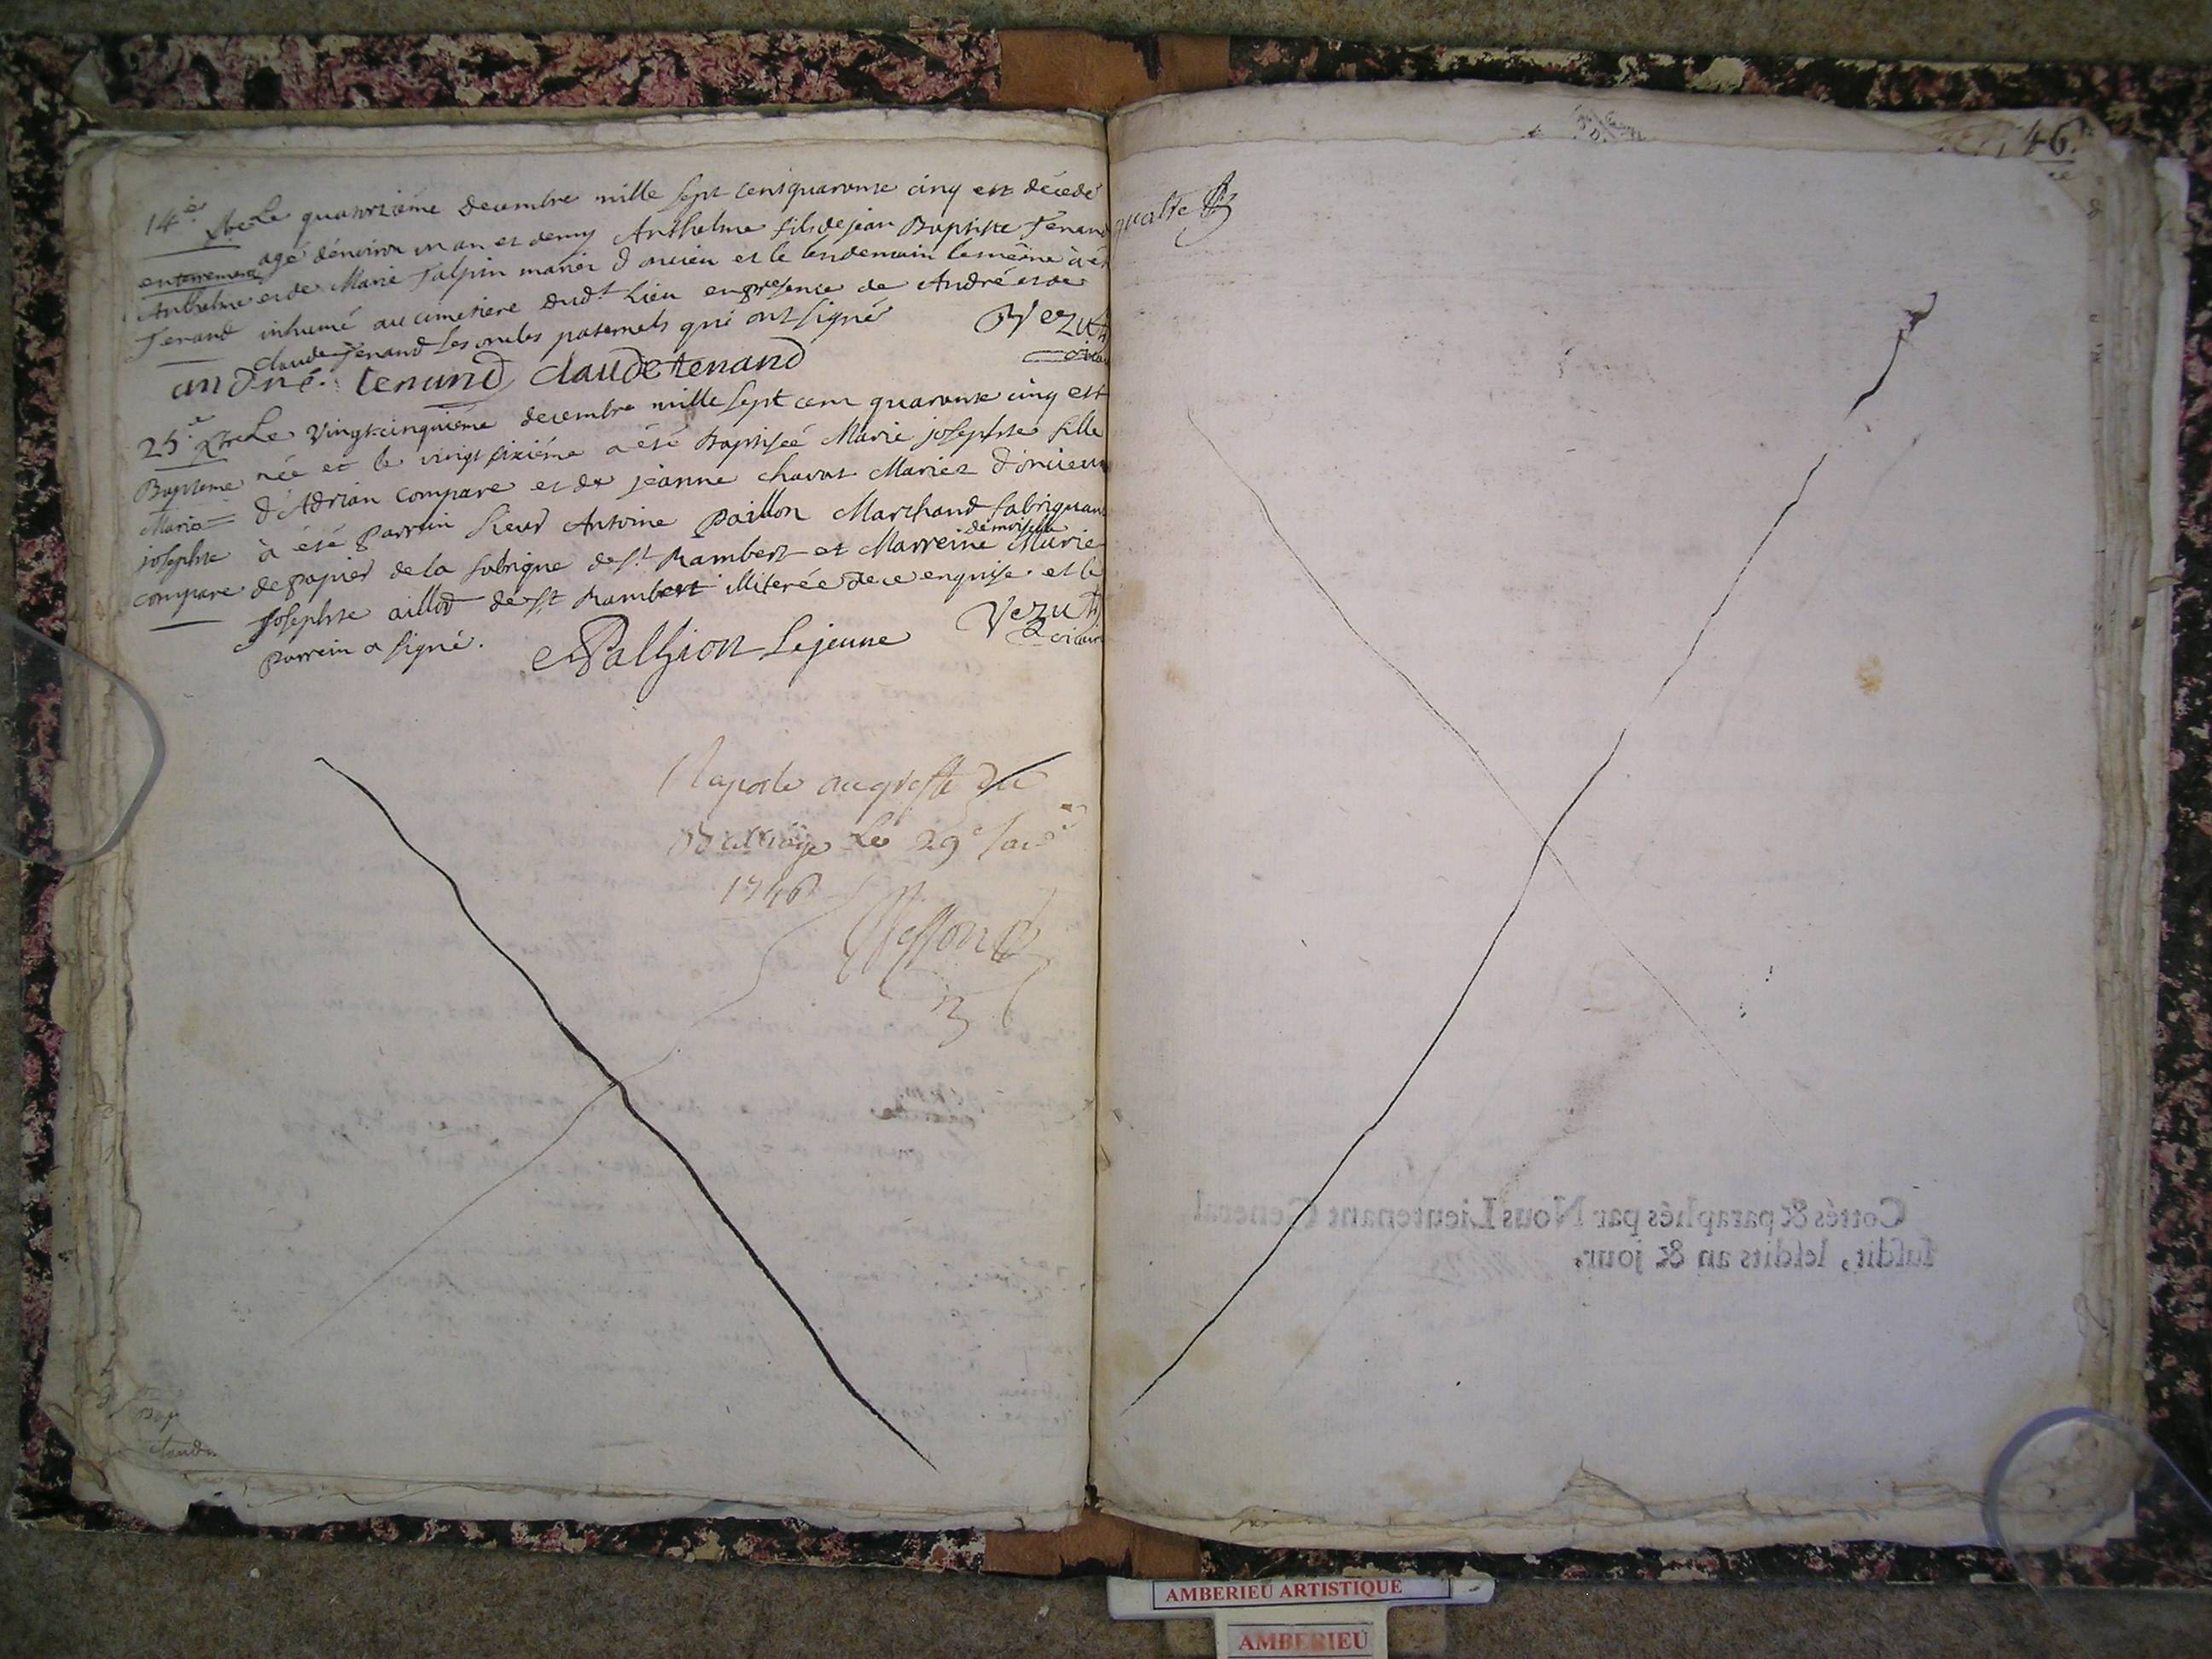 14e Xbre Le quatorziéme decembre mille sept cent quarante cinq est décedé
enterrement agé d'environ un an et demy Anthelme fils de jean Baptiste Tenand
Anthelme et de Marie Talpin mariés d'oncieu et le lendemain le même à été
Tenand inhumé au cimetiere dudt Lieu en presence de André et de
claude Tenand ses oncles paternels qui ont signé
andré tenand claude tenand
Vezu
vicaire
25e Xbre Le vingt cinquiéme decembre mille sept cent quarante cinq est
Bapteme née et le vingt sixiéme a été Baptisée Marie josephte fille
Marie d'Adrian compare et de jeanne chavat Mariés d'oncieu
josephte à été parrein sieur Antoine Paillon Marchand fabriquant
compare de papier de la fabrique de st Rambert et Marreine demoiselle Marie
Josephte aillod de st Rambert illiterée de ce enquise et le
parrein a signé.
Pallion Lejeune
Vezu
vicaire
Raporté au greffe du
Balliage Le 29e Janr
1746
46
Cottés & paraphés par Nous Lieutenant General
susdit, lesdits an & jour,
AMBERIEU ARTISTIQUE
AMBERIEU